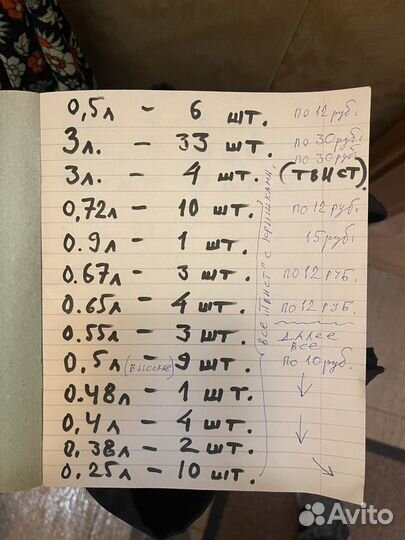 0,5л - 6 шт. по 12 руб.
3л. - 33 шт. по 30 руб.
по 30 руб.
3л. - 4 шт. (твист)
0,72л - 10 шт. по 12 руб.
0.9л - 1 шт. 15 руб.
0.67л - 3 шт. по 12 руб.
0.65л - 4 шт. по 12 руб.
0.55л - 3 шт. далее все
0,5л (высокие) - 9 шт. по 10 руб.
0.48л - 1 шт.
0,4л - 4 шт.
0.38л - 2 шт.
0.25л - 10 шт.
все "твист" с крышками.
Avito